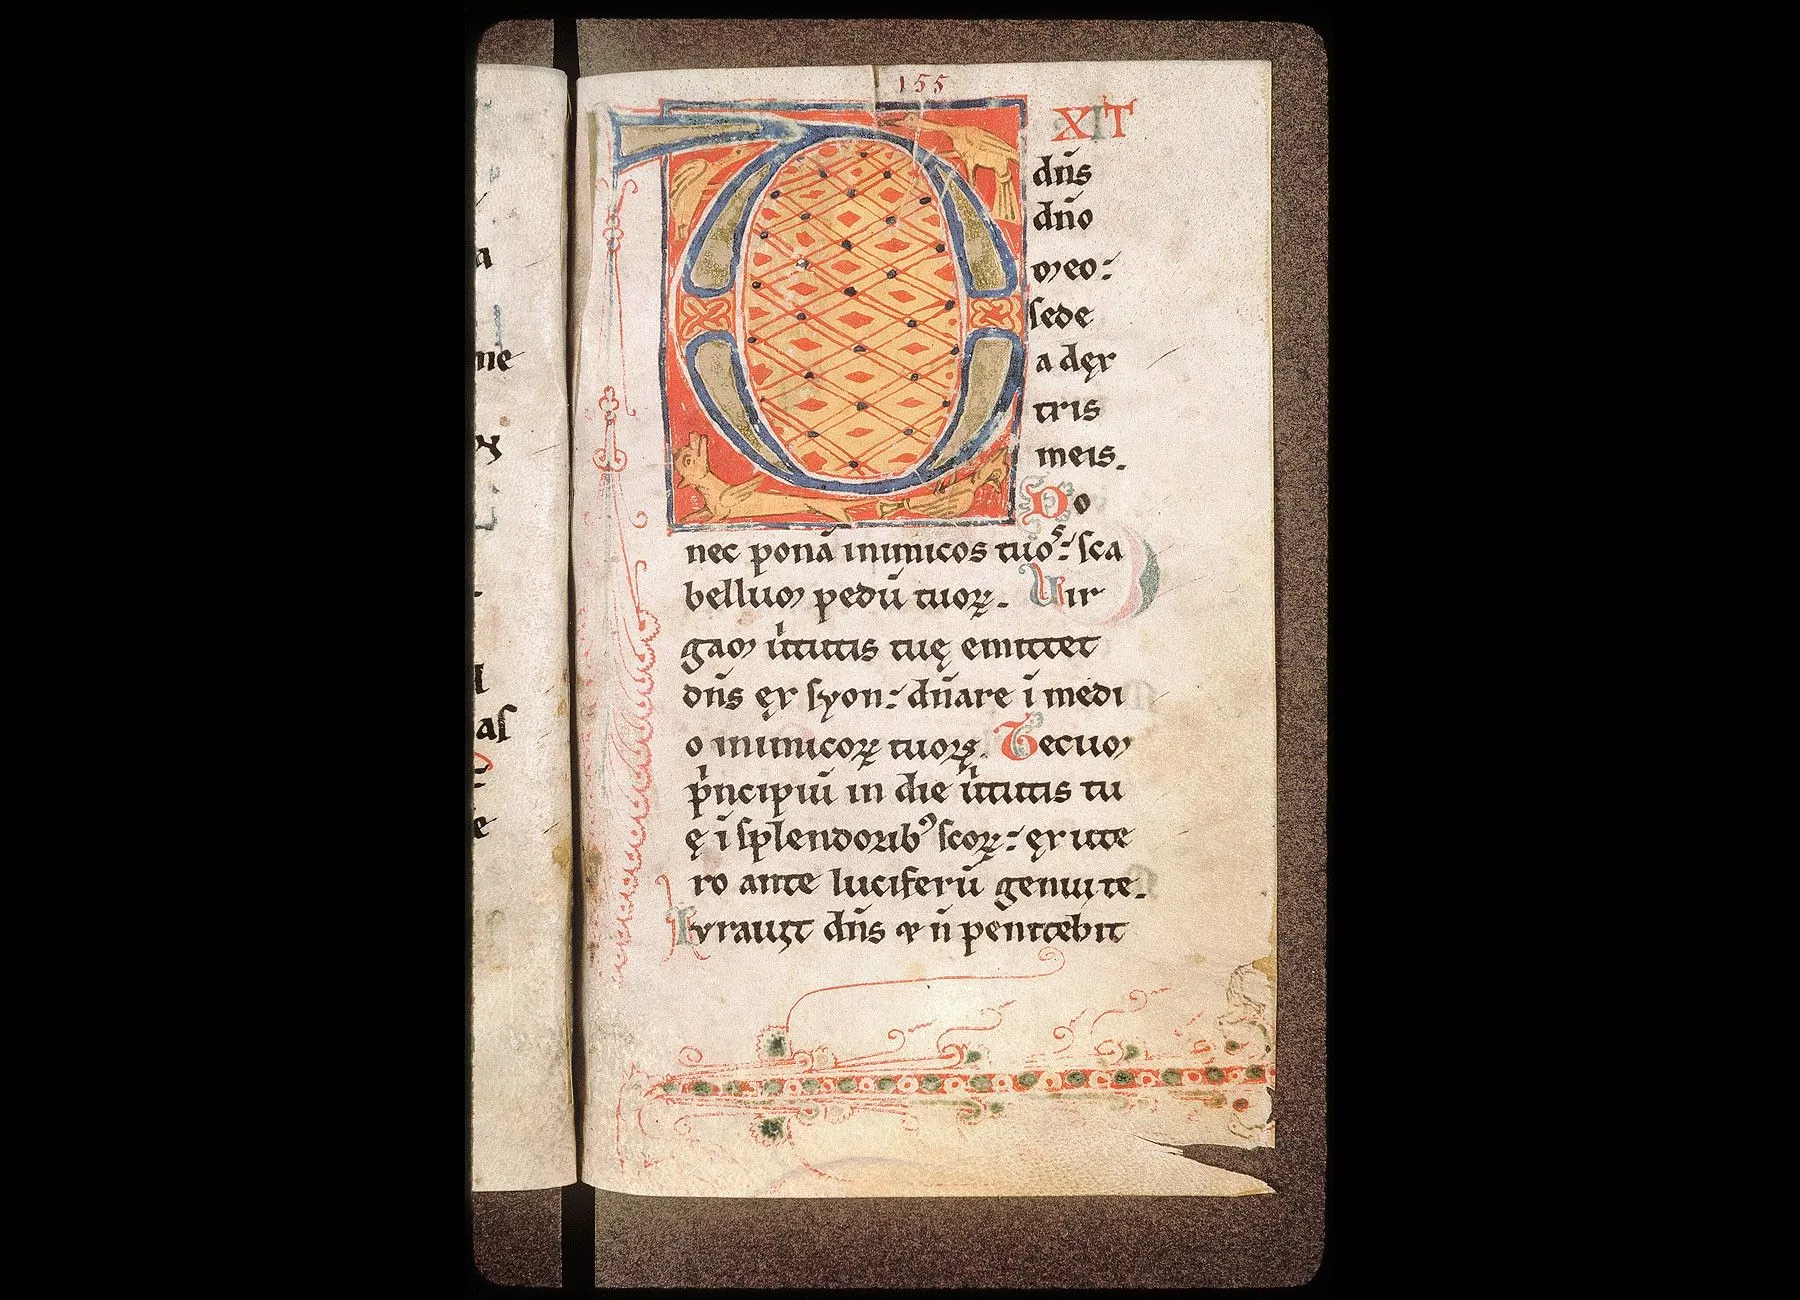 155
DIXIT
dn̄s
dn̄o
meo:
sede
a dęx
tris
meis.
Do
nec ponā inimicos tuoˢ: sca
bellum pedū tuoꝝ. Uir
gam ůtutis tuę emittet
dn̄s ęx syon: dn̄are ī medi
o inimicoꝝ tuoꝝ. Tecum
pͥncipiū in die ůtutis tu
ę ī splendoribꝰ scoꝝ: ęx ute
ro ante luciferū genui te.
Iurauit dn̄s ⁊ n̄ penitebit
a
me
x
as
e